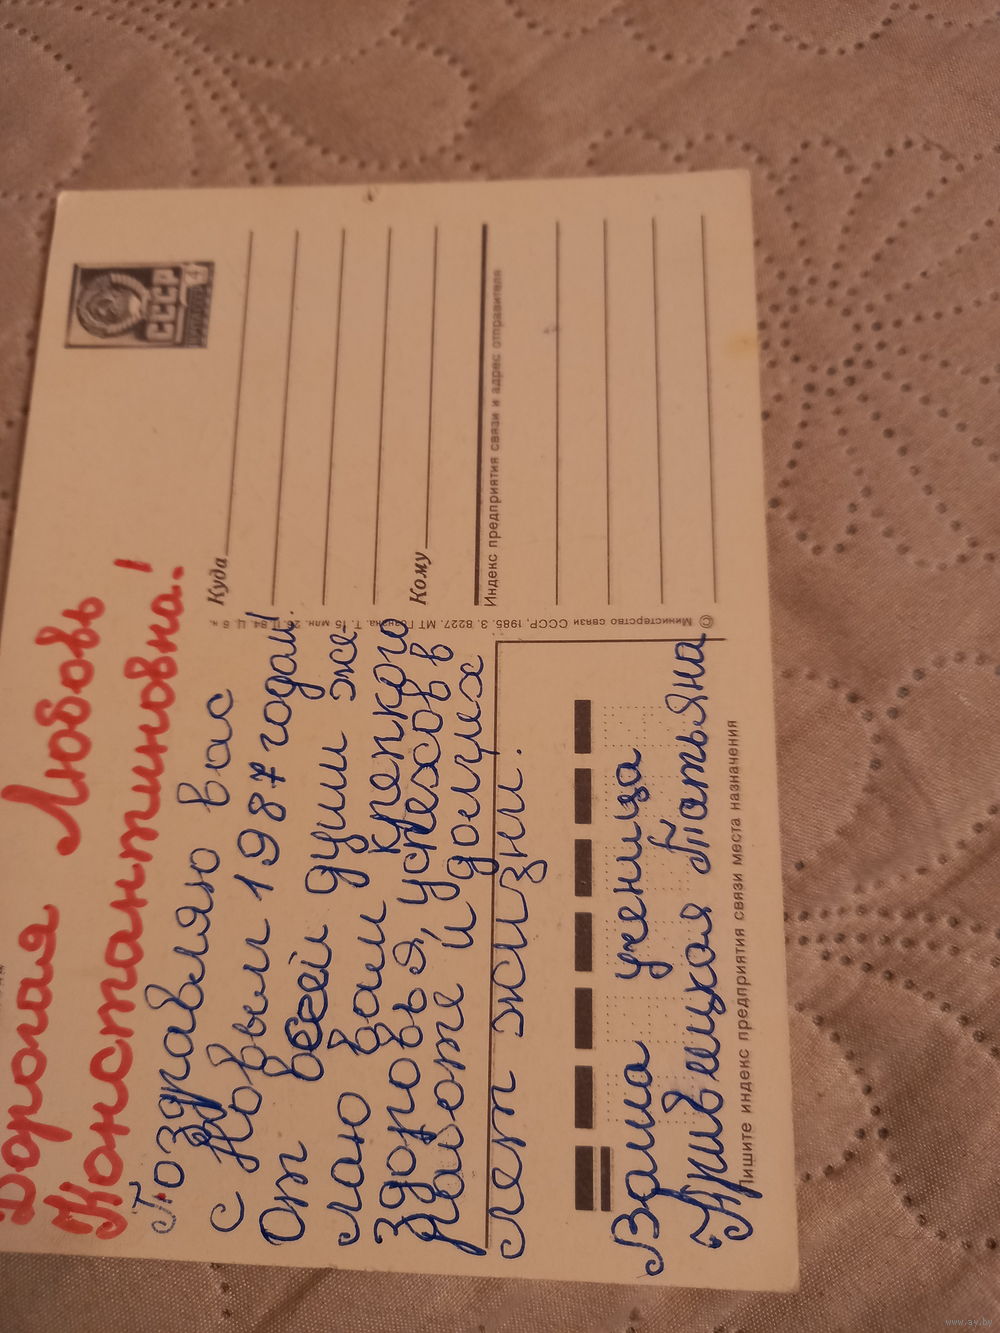 Дорогая Любовь
Константиновна!
Поздравляю вас
с Новым 1987 годом!
От всей души же-
лаю вам крепкого
здоровья, успехов в
работе и долгих
лет жизни.
Ваша ученица
Татьяна
СССР
Куда
Кому
Индекс предприятия связи и адрес отправителя
© Министерство связи СССР, 1985. З. 8227. МТ Гознака. Т. 15 млн. 84. Ц. 6 к.
Пишите индекс предприятия связи места назначения
www.ay.by